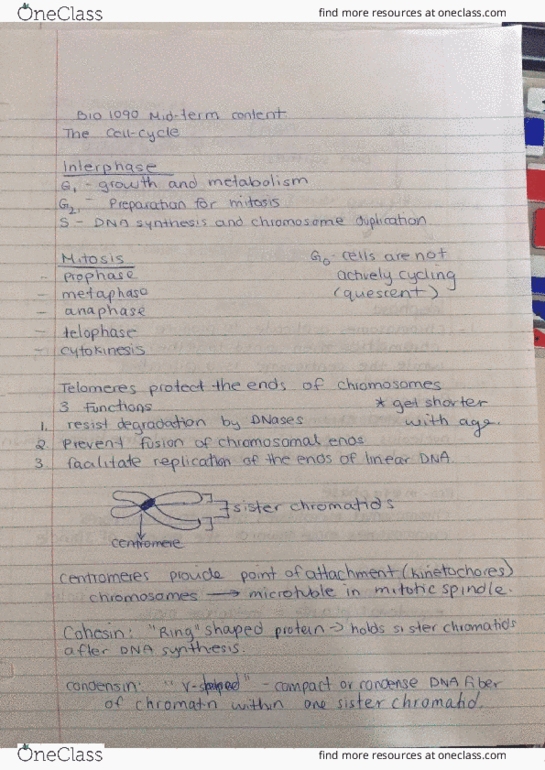 OneClass
find more resources at oneclass.com
BIO 1090 Mid-term content
The Cell-cycle
Interphase
G₁ - growth and metabolism
G₂ - Preparation for mitosis
S - DNA synthesis and chromosome duplication
Mitosis
G₀ - cells are not
- Prophase
actively cycling
- metaphase
(quescent)
- anaphase
- telophase
- cytokinesis
Telomeres protect the ends of chromosomes
3 Functions
* get shorter
1. resist degradation by DNases
with age.
2. Prevent fusion of chromosomal ends
3. facilitate replication of the ends of linear DNA.
sister chromatids
centromere
centromeres provide point of attachment (kinetochores)
chromosomes → microtuble in mitotic spindle.
Cohesin: "Ring" shaped protein → holds sister chromatids
after DNA synthesis.
condensin: "V-shaped" - compact or condense DNA fiber
of chromatn within one sister chromatid.
OneClass
find more resources at oneclass.com